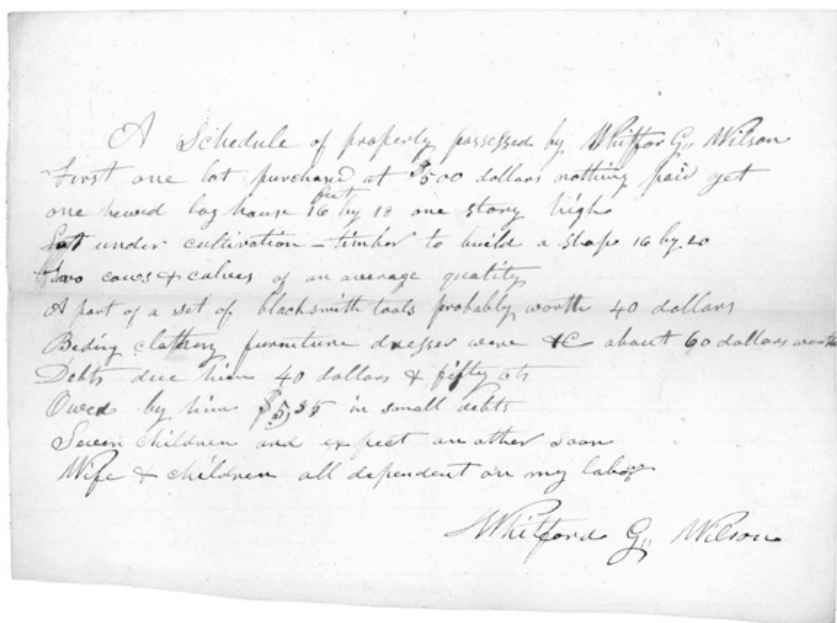 A Schedule of property possessed by Whitfor G,, Wilson
First one lot purchased at $500 dollars nothing paid yet
feet
one hewed log house 16 by 18 one story high
Lot under cultivation – timber to build a shop 16 by 20
Two cows & calves of an average quality
A part of a set of blacksmith tools probably worth 40 dollars
Beding clathing furniture dresser ware &C about 60 dollars worth
Debts due him 40 dollars & fifty cts
Owed by him $5,35 in small debts
Seven children and expect an other soon
Wife & children all dependent on my labor
Whitford G,, Wilson